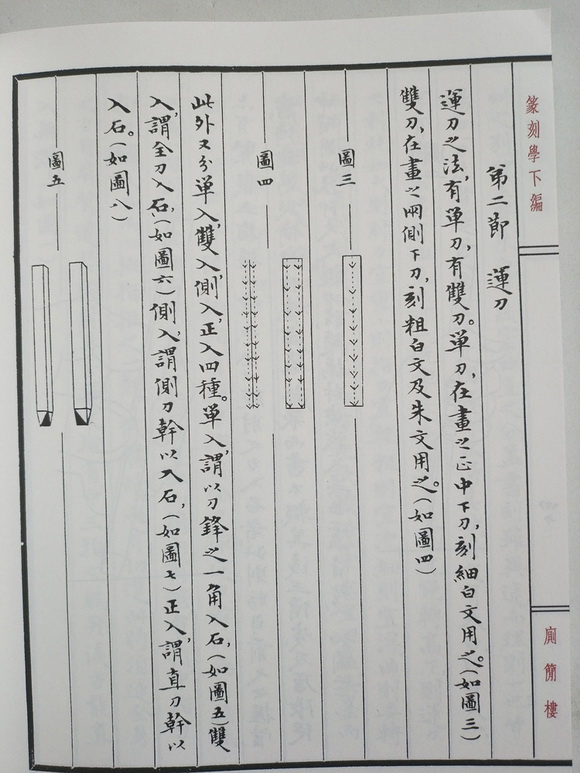 篆刻學下編
廁簡樓
第二節　運刀
運刀之法,有單刀,有雙刀。單刀,在畫之正中下刀,刻細白文用之。(如圖三)
雙刀,在畫之兩側下刀,刻粗白文及朱文用之。(如圖四)
圖三
圖四
此外又分單入,雙入,側入,正入四種。單入,謂以刀鋒之一角入石,(如圖五)雙
入,謂全刀入石,(如圖六)側入,謂側刀幹以入石,(如圖七)正入,謂直刀幹以
入石。(如圖八)
圖五